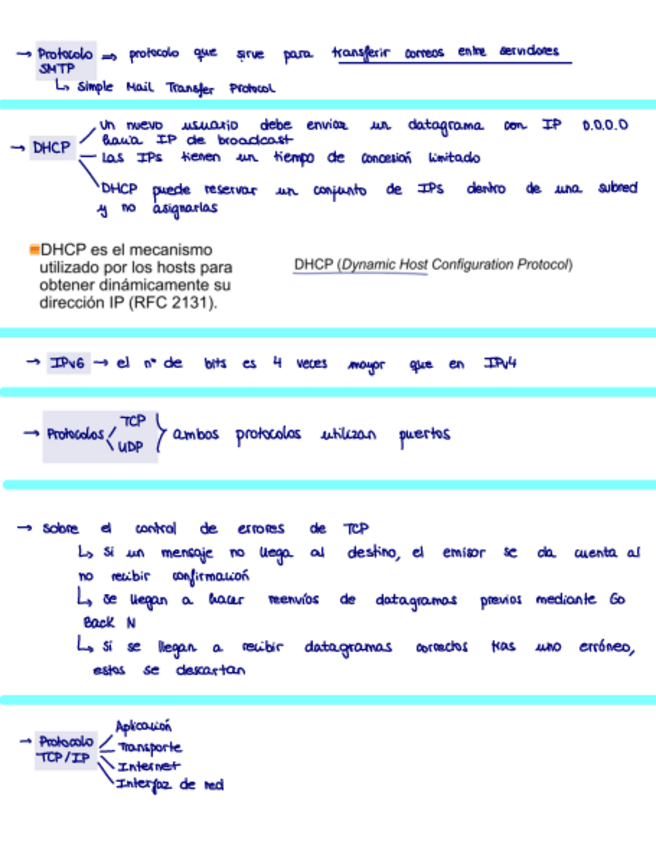 → Protocolo ⇒ protocolo que sirve para transferir correos entre servidores
SMTP
↳ Simple Mail Transfer Protocol
→ DHCP
un nuevo usuario debe enviar un datagrama con IP 0.0.0.0
hacia IP de broadcast
las IPs tienen un tiempo de concesión limitado
DHCP puede reservar un conjunto de IPs dentro de una subred
y no asignarlas
DHCP es el mecanismo
utilizado por los hosts para
obtener dinámicamente su
dirección IP (RFC 2131).
DHCP (Dynamic Host Configuration Protocol)
→ IPv6 → el nº de bits es 4 veces mayor que en IPv4
→ Protocolos TCP
UDP
ambos protocolos utilizan puertos
→ sobre el control de errores de TCP
↳ si un mensaje no llega al destino, el emisor se da cuenta al
no recibir confirmación
↳ se llegan a hacer reenvíos de datagramas previos mediante Go
Back N
↳ si se llegan a recibir datagramas correctos tras uno erróneo,
estos se descartan
→ Protocolo
TCP/IP
Aplicación
Transporte
Internet
Interfaz de red